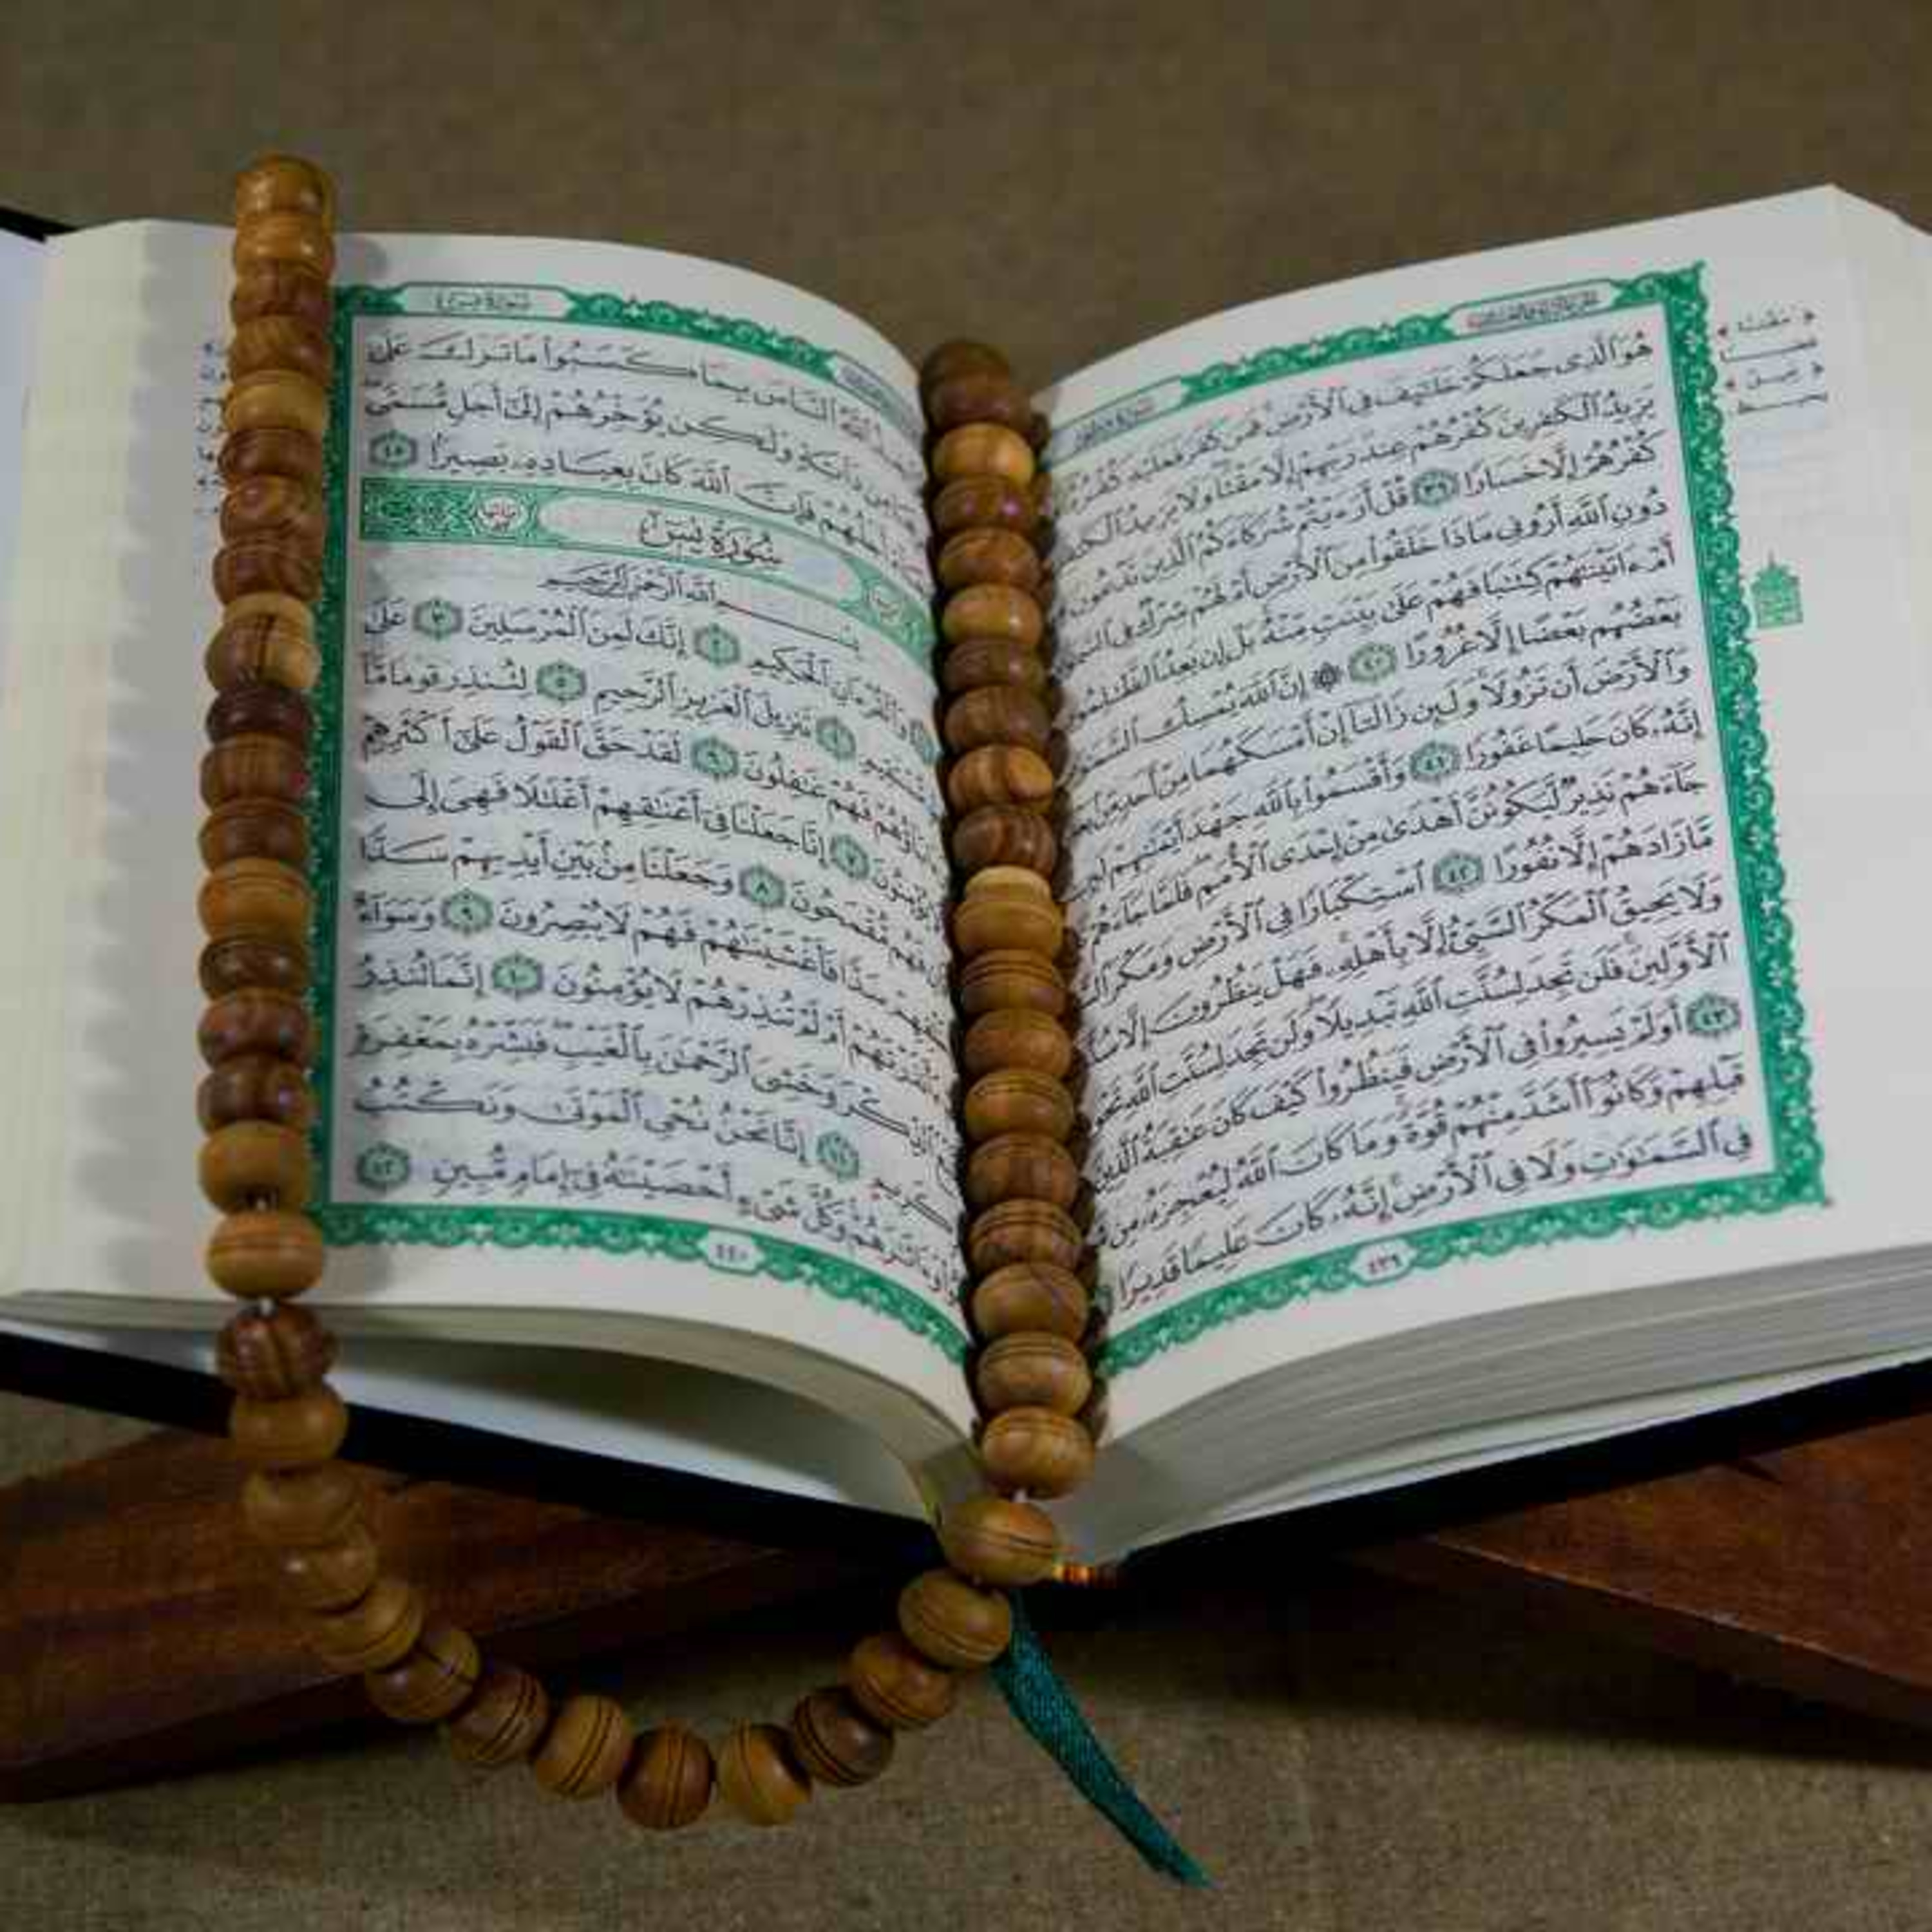 هُوَ ٱلَّذِى جَعَلَكُمْ خَلَٰٓئِفَ فِى ٱلْأَرْضِ فَمَن كَفَرَ فَعَلَيْهِ كُفْرُهُ
يَزِيدُ ٱلْكَٰفِرِينَ كُفْرُهُمْ عِندَ رَبِّهِمْ إِلَّا مَقْتًا وَلَا يَزِيدُ
كُفْرُهُمْ إِلَّا خَسَارًا ٣٩ قُلْ أَرَءَيْتُمْ شُرَكَآءَكُمُ ٱلَّذِينَ تَدْعُونَ
دُونِ ٱللَّهِ أَرُونِى مَاذَا خَلَقُوا۟ مِنَ ٱلْأَرْضِ أَمْ لَهُمْ شِرْكٌ فِى
أَمْ ءَاتَيْنَٰهُمْ كِتَٰبًا فَهُمْ عَلَىٰ بَيِّنَتٍ مِّنْهُ بَلْ إِن يَعِدُ ٱلظَّٰلِمُونَ
بَعْضُهُم بَعْضًا إِلَّا غُرُورًا ٤٠ ۞ إِنَّ ٱللَّهَ يُمْسِكُ
وَٱلْأَرْضَ أَن تَزُولَا وَلَئِن زَالَتَآ إِنْ أَمْسَكَهُمَا مِنْ أَحَدٍ مِّنۢ
إِنَّهُۥ كَانَ حَلِيمًا غَفُورًا ٤١ وَأَقْسَمُوا۟ بِٱللَّهِ جَهْدَ أَيْمَٰنِهِمْ
جَآءَهُمْ نَذِيرٌ لَّيَكُونُنَّ أَهْدَىٰ مِنْ إِحْدَى ٱلْأُمَمِ فَلَمَّا جَآءَهُمْ
مَّا زَادَهُمْ إِلَّا نُفُورًا ٤٢ ٱسْتِكْبَارًا فِى ٱلْأَرْضِ وَمَكْرَ
وَلَا يَحِيقُ ٱلْمَكْرُ ٱلسَّيِّئُ إِلَّا بِأَهْلِهِۦ فَهَلْ يَنظُرُونَ إِلَّا
ٱلْأَوَّلِينَ فَلَن تَجِدَ لِسُنَّتِ ٱللَّهِ تَبْدِيلًا وَلَن تَجِدَ لِسُنَّتِ ٱللَّهِ
٤٣ أَوَلَمْ يَسِيرُوا۟ فِى ٱلْأَرْضِ فَيَنظُرُوا۟ كَيْفَ كَانَ عَٰقِبَةُ ٱلَّذِينَ
قَبْلِهِمْ وَكَانُوٓا۟ أَشَدَّ مِنْهُمْ قُوَّةً وَمَا كَانَ ٱللَّهُ لِيُعْجِزَهُۥ مِن
فِى ٱلسَّمَٰوَٰتِ وَلَا فِى ٱلْأَرْضِ إِنَّهُۥ كَانَ عَلِيمًا قَدِيرًا
٤٣٩
سُورَةُ يسٓ
ٱللَّهُ ٱلنَّاسَ بِمَا كَسَبُوا۟ مَا تَرَكَ عَلَىٰ
مِن دَآبَّةٍ وَلَٰكِن يُؤَخِّرُهُمْ إِلَىٰٓ أَجَلٍ مُّسَمًّى
أَجَلُهُمْ فَإِنَّ ٱللَّهَ كَانَ بِعِبَادِهِۦ بَصِيرًۢا ٤٥
سُورَةُ يسٓ
بِسْمِ ٱللَّهِ ٱلرَّحْمَٰنِ ٱلرَّحِيمِ
وَٱلْقُرْءَانِ ٱلْحَكِيمِ ٢ إِنَّكَ لَمِنَ ٱلْمُرْسَلِينَ ٣ عَلَىٰ
مُّسْتَقِيمٍ ٤ تَنزِيلَ ٱلْعَزِيزِ ٱلرَّحِيمِ ٥ لِتُنذِرَ قَوْمًا مَّآ
ءَابَآؤُهُمْ فَهُمْ غَٰفِلُونَ ٦ لَقَدْ حَقَّ ٱلْقَوْلُ عَلَىٰٓ أَكْثَرِهِمْ
يُؤْمِنُونَ ٧ إِنَّا جَعَلْنَا فِىٓ أَعْنَٰقِهِمْ أَغْلَٰلًا فَهِىَ إِلَى
فَهُم مُّقْمَحُونَ ٨ وَجَعَلْنَا مِنۢ بَيْنِ أَيْدِيهِمْ سَدًّا
سَدًّا فَأَغْشَيْنَٰهُمْ فَهُمْ لَا يُبْصِرُونَ ٩ وَسَوَآءٌ
ءَأَنذَرْتَهُمْ أَمْ لَمْ تُنذِرْهُمْ لَا يُؤْمِنُونَ ١٠ إِنَّمَا تُنذِرُ
ٱلذِّكْرَ وَخَشِىَ ٱلرَّحْمَٰنَ بِٱلْغَيْبِ فَبَشِّرْهُ بِمَغْفِرَةٍ
كَرِيمٍ ١١ إِنَّا نَحْنُ نُحْىِ ٱلْمَوْتَىٰ وَنَكْتُبُ
وَءَاثَٰرَهُمْ وَكُلَّ شَىْءٍ أَحْصَيْنَٰهُ فِىٓ إِمَامٍ مُّبِينٍ ١٢
٤٤٠